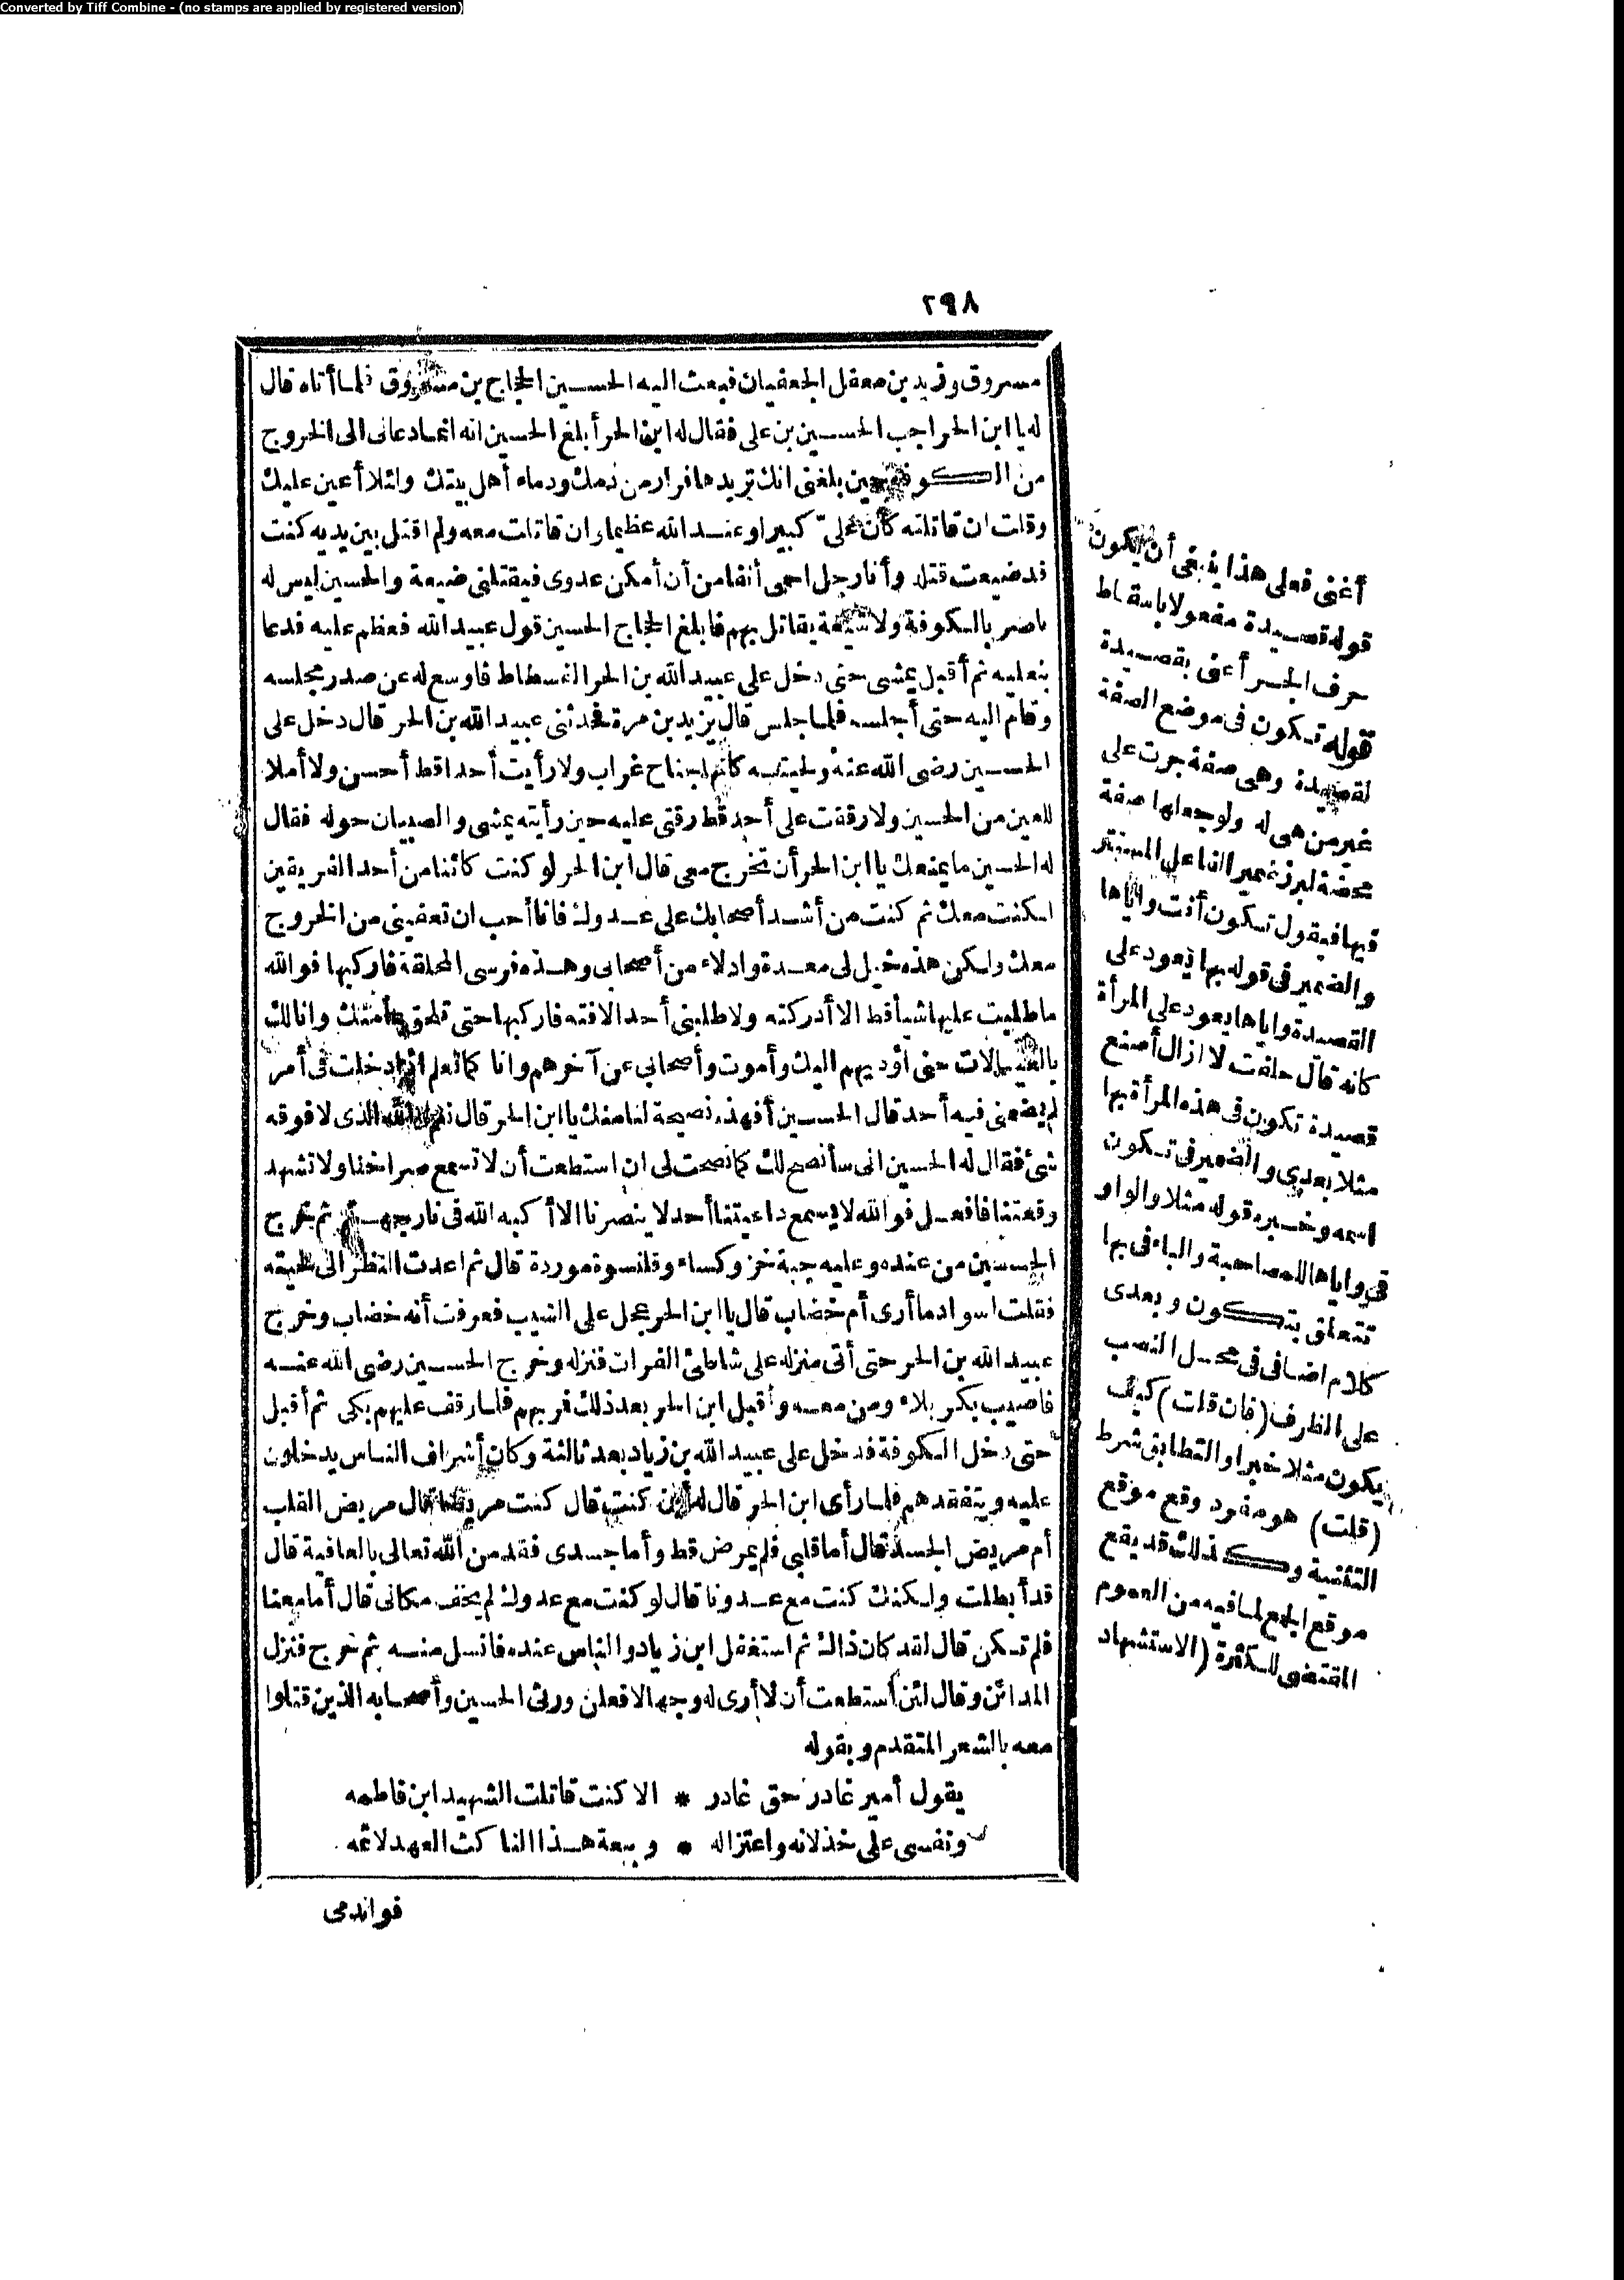 Converted by Tiff Combine - (no stamps are applied by registered version)
٢٩٨
مسروق وزيد بن معقل الجعفيان فبعث اليه الحسين الحجاج بن مسروق فلما أتاه قال
له يا ابن الحر اجب الحسين بن على فقال له ابن الحر أبلغ الحسين انه انما دعانى الى الخروج
من الكوفة حين بلغنى انك تريدها فرار من دمك ودماء أهل بيتك ولئلا أعين عليك
وقلت ان قاتلته كان علىّ كبيرا وعند الله عظيما وان قاتلت معه ولم اقتل بين يديه كنت
قد ضيعت قتله وأنا رجل احمى أنفا من أن أمكن عدوى فيقتلنى ضيعة والحسين ليس له
ناصر بالكوفة ولا شيعة يقاتل بهم فابلغ الحجاج الحسين قول عبيد الله فعظم عليه فدعا
بنعليه ثم أقبل يمشى حتى دخل على عبيد الله بن الحر الفسطاط فاوسع له عن صدر مجلسه
وقام اليه حتى أجلسه فلما جلس قال يزيد بن مرة فحدثنى عبيد الله بن الحر قال دخل على
الحسين رضى الله عنه ولحيته كأنها جناح غراب ولا رأيت أحدا قط أحسن ولا أملا
للعين من الحسين ولا رققت على أحد قط رقتى عليه حين رأيته يمشى والصبيان حوله فقال
له الحسين ما يمنعك يا ابن الحر أن تخرج معى قال ابن الحر لو كنت كائنا من أحد الفريقين
لكنت معك ثم كنت من أشد أصحابك على عدوك فانا أحب ان تعفينى من الخروج
معك ولكن هذه خيل لى معدة وادلاء من أصحابى وهذه فرسى المحلقة فاركبها فوالله
ما طلبت عليها شيأ قط الا أدركته ولا طلبنى أحد الا فته فاركبها حتى تلحق بمأمنك وانا لك
بالعيالات حتى أؤديهم اليك وأموت وأصحابى عن آخرهم وانا كما تعلم اذا دخلت فى أمر
لم يضمنى فيه أحد قال الحسين أفهذه نصيحة لنا منك يا ابن الحر قال نعم والله الذى لا فوقه
شئ فقال له الحسين انى سأنصح لك كما نصحت لى ان استطعت أن لا تسمع صراخنا ولا تشهد
وقعتنا فافعل فوالله لا يسمع داعيتنا أحد لا ينصرنا الا أكبه الله فى نار جهنم ثم خرج
الحسين من عنده وعليه جبة خز وكساء وقلنسوة موردة قال ثم اعدت النظر الى لحيته
فقلت اسواد ما أرى أم خضاب قال يا ابن الحر عجل على الشيب فعرفت أنه خضاب وخرج
عبيد الله بن الحر حتى أتى منزله على شاطئ الفرات فنزله وخرج الحسين رضى الله عنه
فاصيب بكربلاء ومن معه وأقبل ابن الحر بعد ذلك فر بهم فلما وقف عليهم بكى ثم أقبل
حتى دخل الكوفة فدخل على عبيد الله بن زياد بعد ثالثة وكان أشراف الناس يدخلون
عليه ويتفقدهم فلما رأى ابن الحر قال له أين كنت قال كنت مريضا قال مريض القلب
أم مريض الجسد قال أما قلبى فلم يمرض قط وأما جسدى فقد من الله تعالى بالعافية قال
قد أبطلت ولكنك كنت مع عدونا قال لو كنت مع عدوك لم يخف مكانى قال أما معنا
فلم تكن قال لقد كان ذاك ثم استغفل ابن زياد والناس عنده فانسل منه ثم خرج فنزل
المدائن وقال لئن استطعت أن لا أرى له وجها لافعلن ورثى الحسين وأصحابه الذين قتلوا
معه بالشعر المتقدم وبقوله
يقول أمير غادر حق غادر * الا كنت قاتلت الشهيد ابن فاطمه
ونفسى على خذلانه واعتزاله * وبيعة هذا الناكث العهد لائمه
فواندمى
أغنى فعلى هذا ينبغى أن يكون
قوله قصيدة مفعولا باسقاط
حرف الجر أعنى بقصيدة
قوله تكون فى موضع الصفة
لقصيدة وهى صفة جرت على
غير من هى له ولو جعلها صفة
محضة لبرز ضمير الفاعل المستتر
فيها فيقول تكون أنت واياها
والضمير فى قوله بها يعود على
القصيدة واياها يعود على المرأة
كانه قال حلفت لا ازال أصنع
قصيدة تكون فى هذه المرأة بها
مثلا بعدى والضمير فى تكون
اسمه وخبره قوله مثلا والواو
فى واياها للمصاحبة والباء فى بها
تتعلق بتكون وبعدى
كلام اضافى فى محل النصب
على الظرف (فان قلت) كيف
يكون مثلا خبرا والتطابق شرط
(قلت) هو مفرد وقع موقع
التثنية وكذلك قد يقع
موقع الجمع لما فيه من العموم
المقتضى للكثرة (الاستشهاد